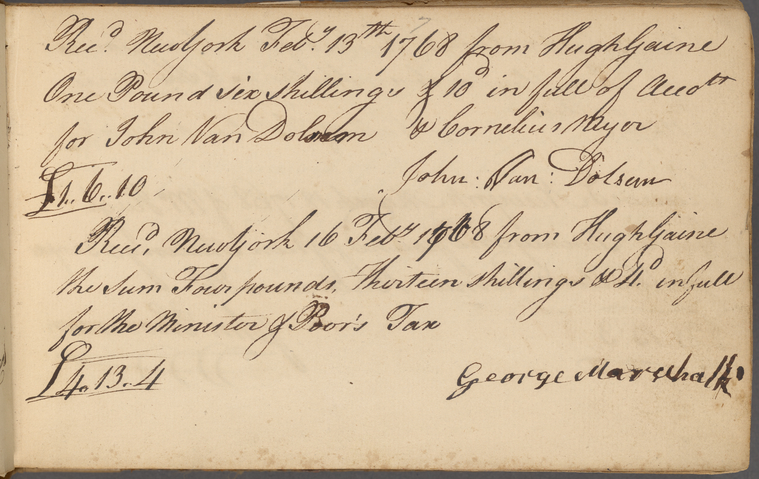 Rec.d NewYork Feb.y 13th 1768 from Hugh Gaine
One Pound six shillings & 10d in full of Accots
for John Van Dolsem & Cornelius Meyer
£1..6..10
John: Van: Dolsem
Rec.d NewYork 16 Feb.y 1768 from Hugh Gaine
the sum Four pounds Thirteen shillings & 4d in full
for the Minister & Poor's Tax
£4..13..4
George Marschalk